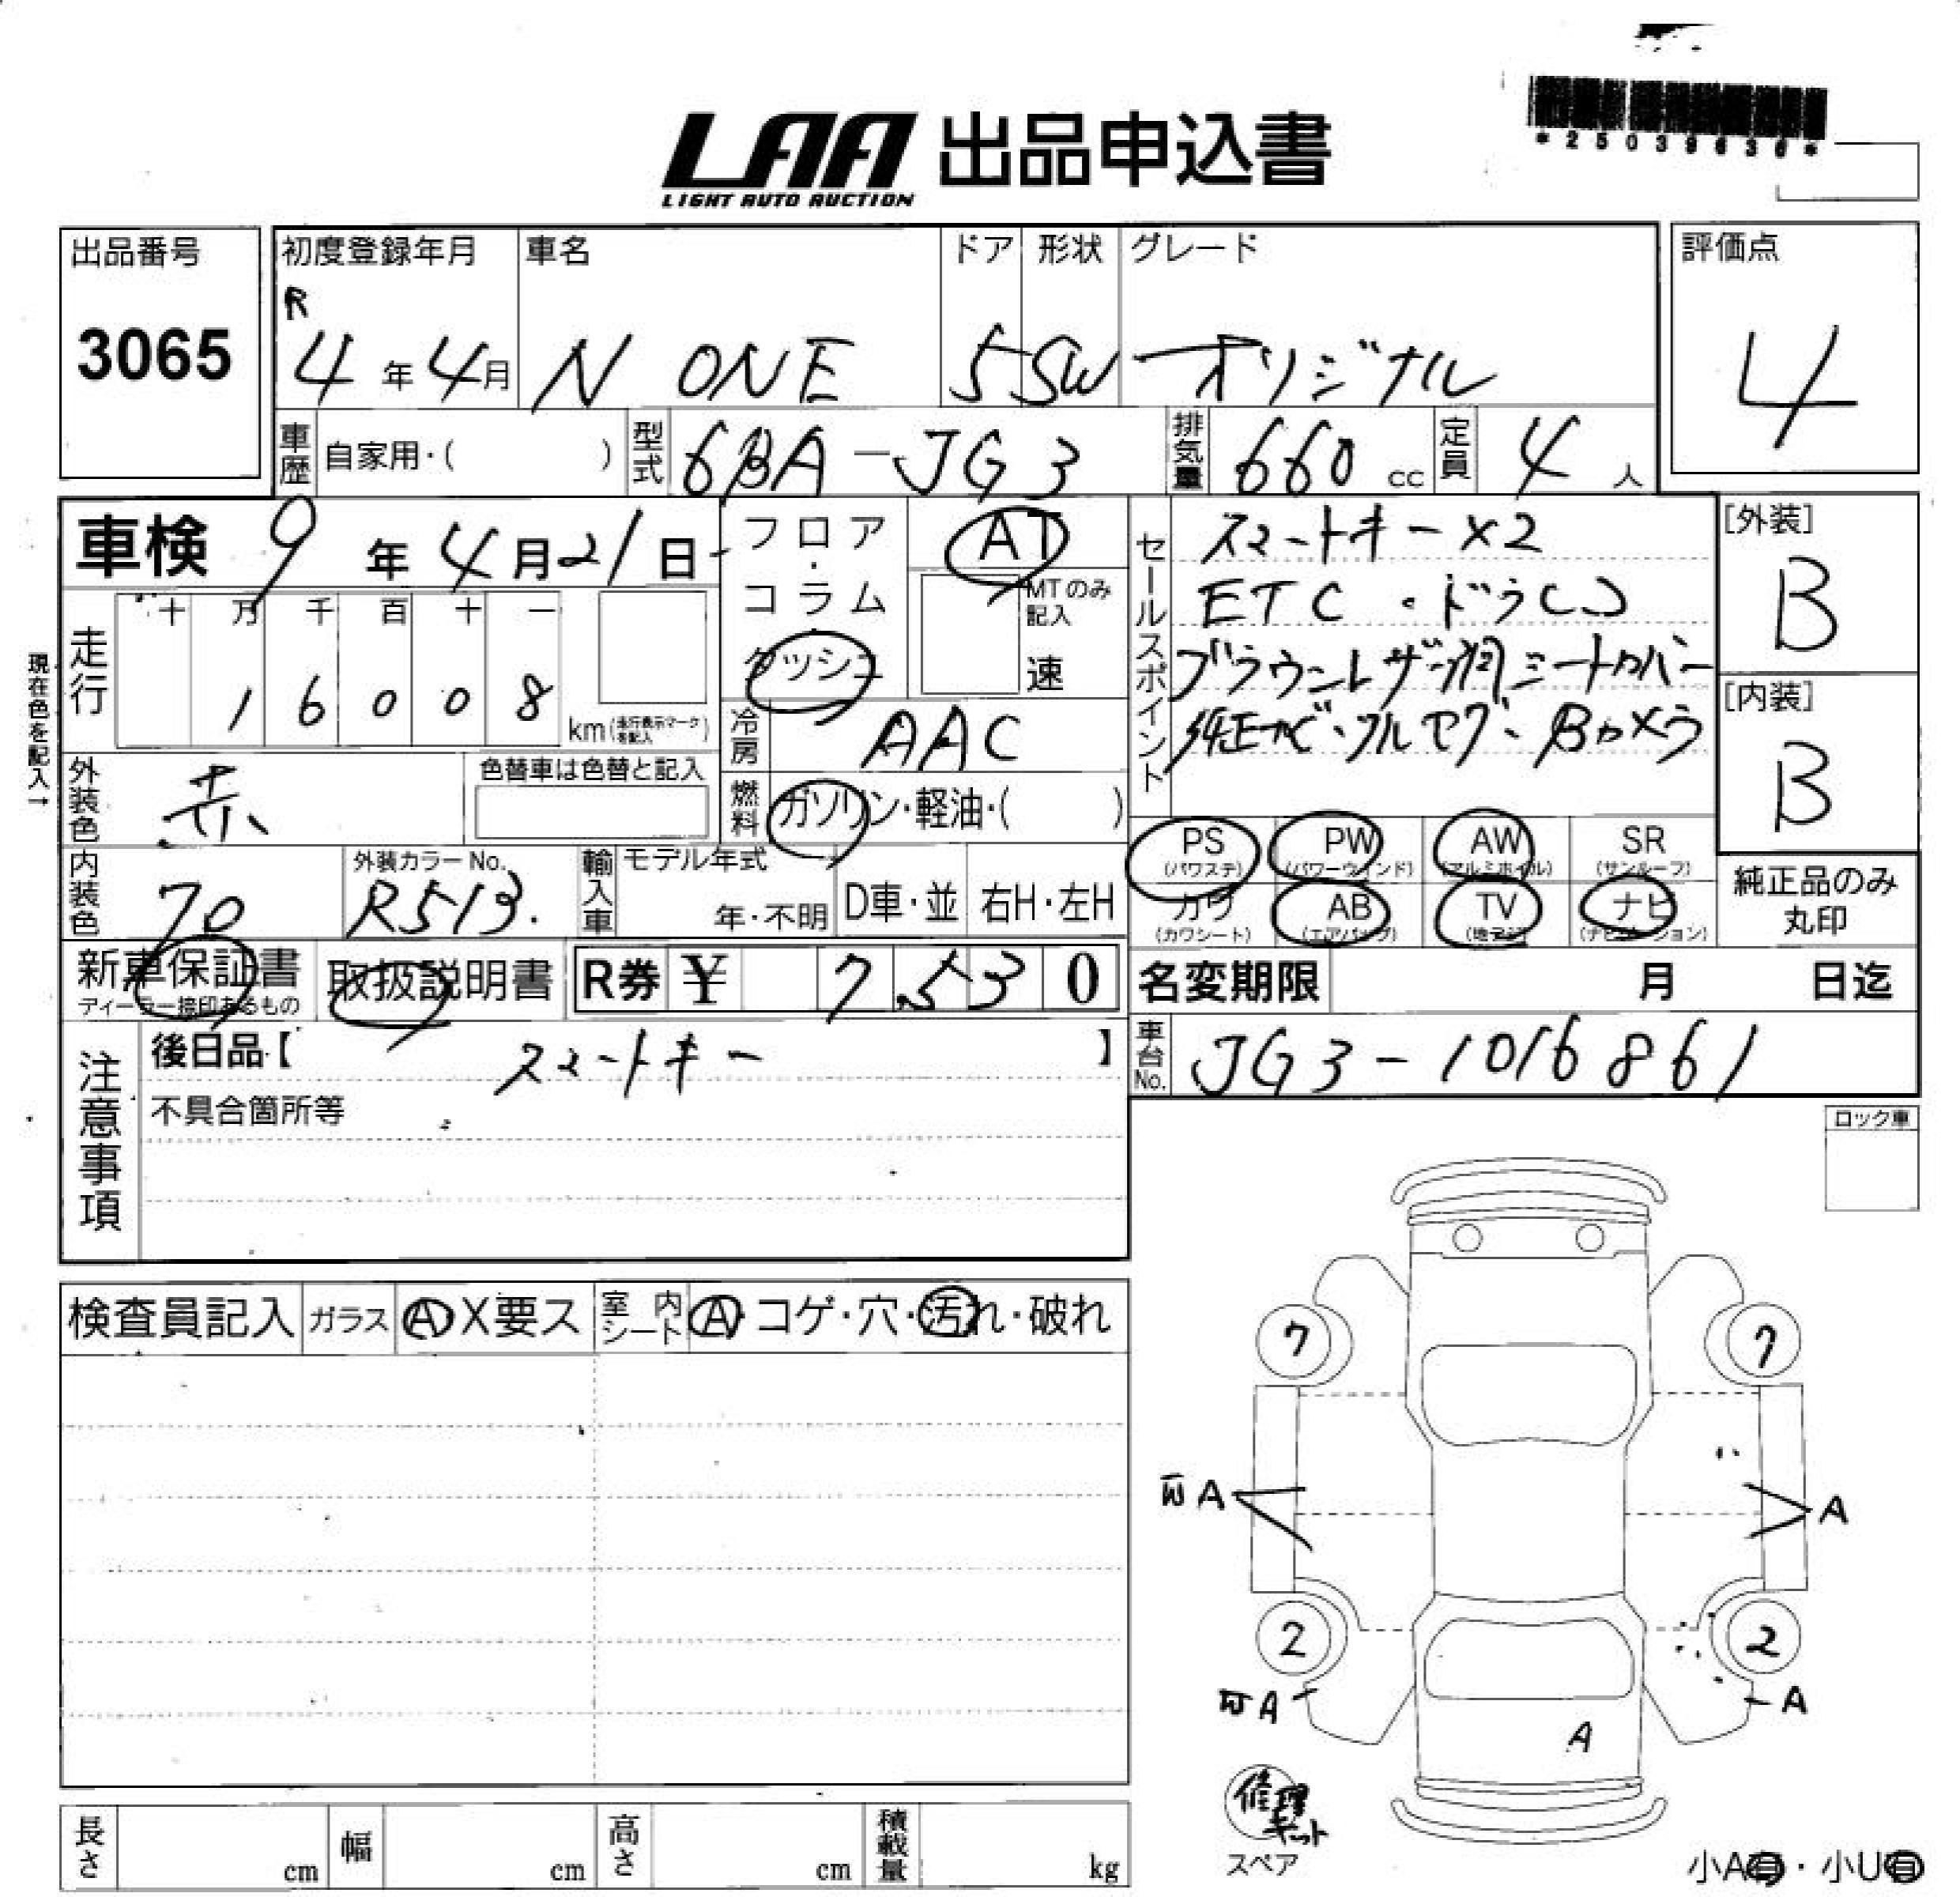 *25039636*
LAA 出品申込書
LIGHT AUTO AUCTION
出品番号
3065
初度登録年月
R
4年4月
車名
N ONE
ドア
5
形状
SW
グレード
オリジナル
評価点
4
車歴 自家用・( )
型式 6BA-JG3
排気量 660 cc
定員 4 人
車検 9年4月21日
フロア・コラム・ダッシュ
AT
MTのみ記入
速
セールスポイント
スマートキー×2
ETC・ドラレコ
ブラウンレザー調シートカバー
純正ナビ・フルセグ・Bカメラ
[外装]
B
[内装]
B
現在色を記入→
走行
十 万 千 百 十 一
1 6 0 0 8
km(走行表示マークを記入)
冷房 AAC
外装色 赤
色替車は色替と記入
燃料 ガソリン・軽油・( )
内装色
外装カラーNo.
R513
輸入車
モデル年式
年・不明
D車・並
右H・左H
PS
(パワステ)
PW
(パワーウィンド)
AW
(アルミホイル)
SR
(サンルーフ)
カワ
(カワシート)
AB
(エアバッグ)
TV
(地デジ)
ナビ
(ナビゲーション)
純正品のみ
丸印
新車保証書
ディーラー捺印あるもの
取扱説明書
R券 ¥ 7,530
名変期限 月 日迄
注意事項
後日品【 スマートキー 】
不具合箇所等
車台No. JG3-1016861
ロック車
検査員記入
ガラス A X 要ス
室内シート A・コゲ・穴・汚れ・破れ
7
7
A
A
2
2
A
A
A
修理キット
スペア
長さ cm
幅 cm
高さ cm
積載量 kg
小A有・小U有